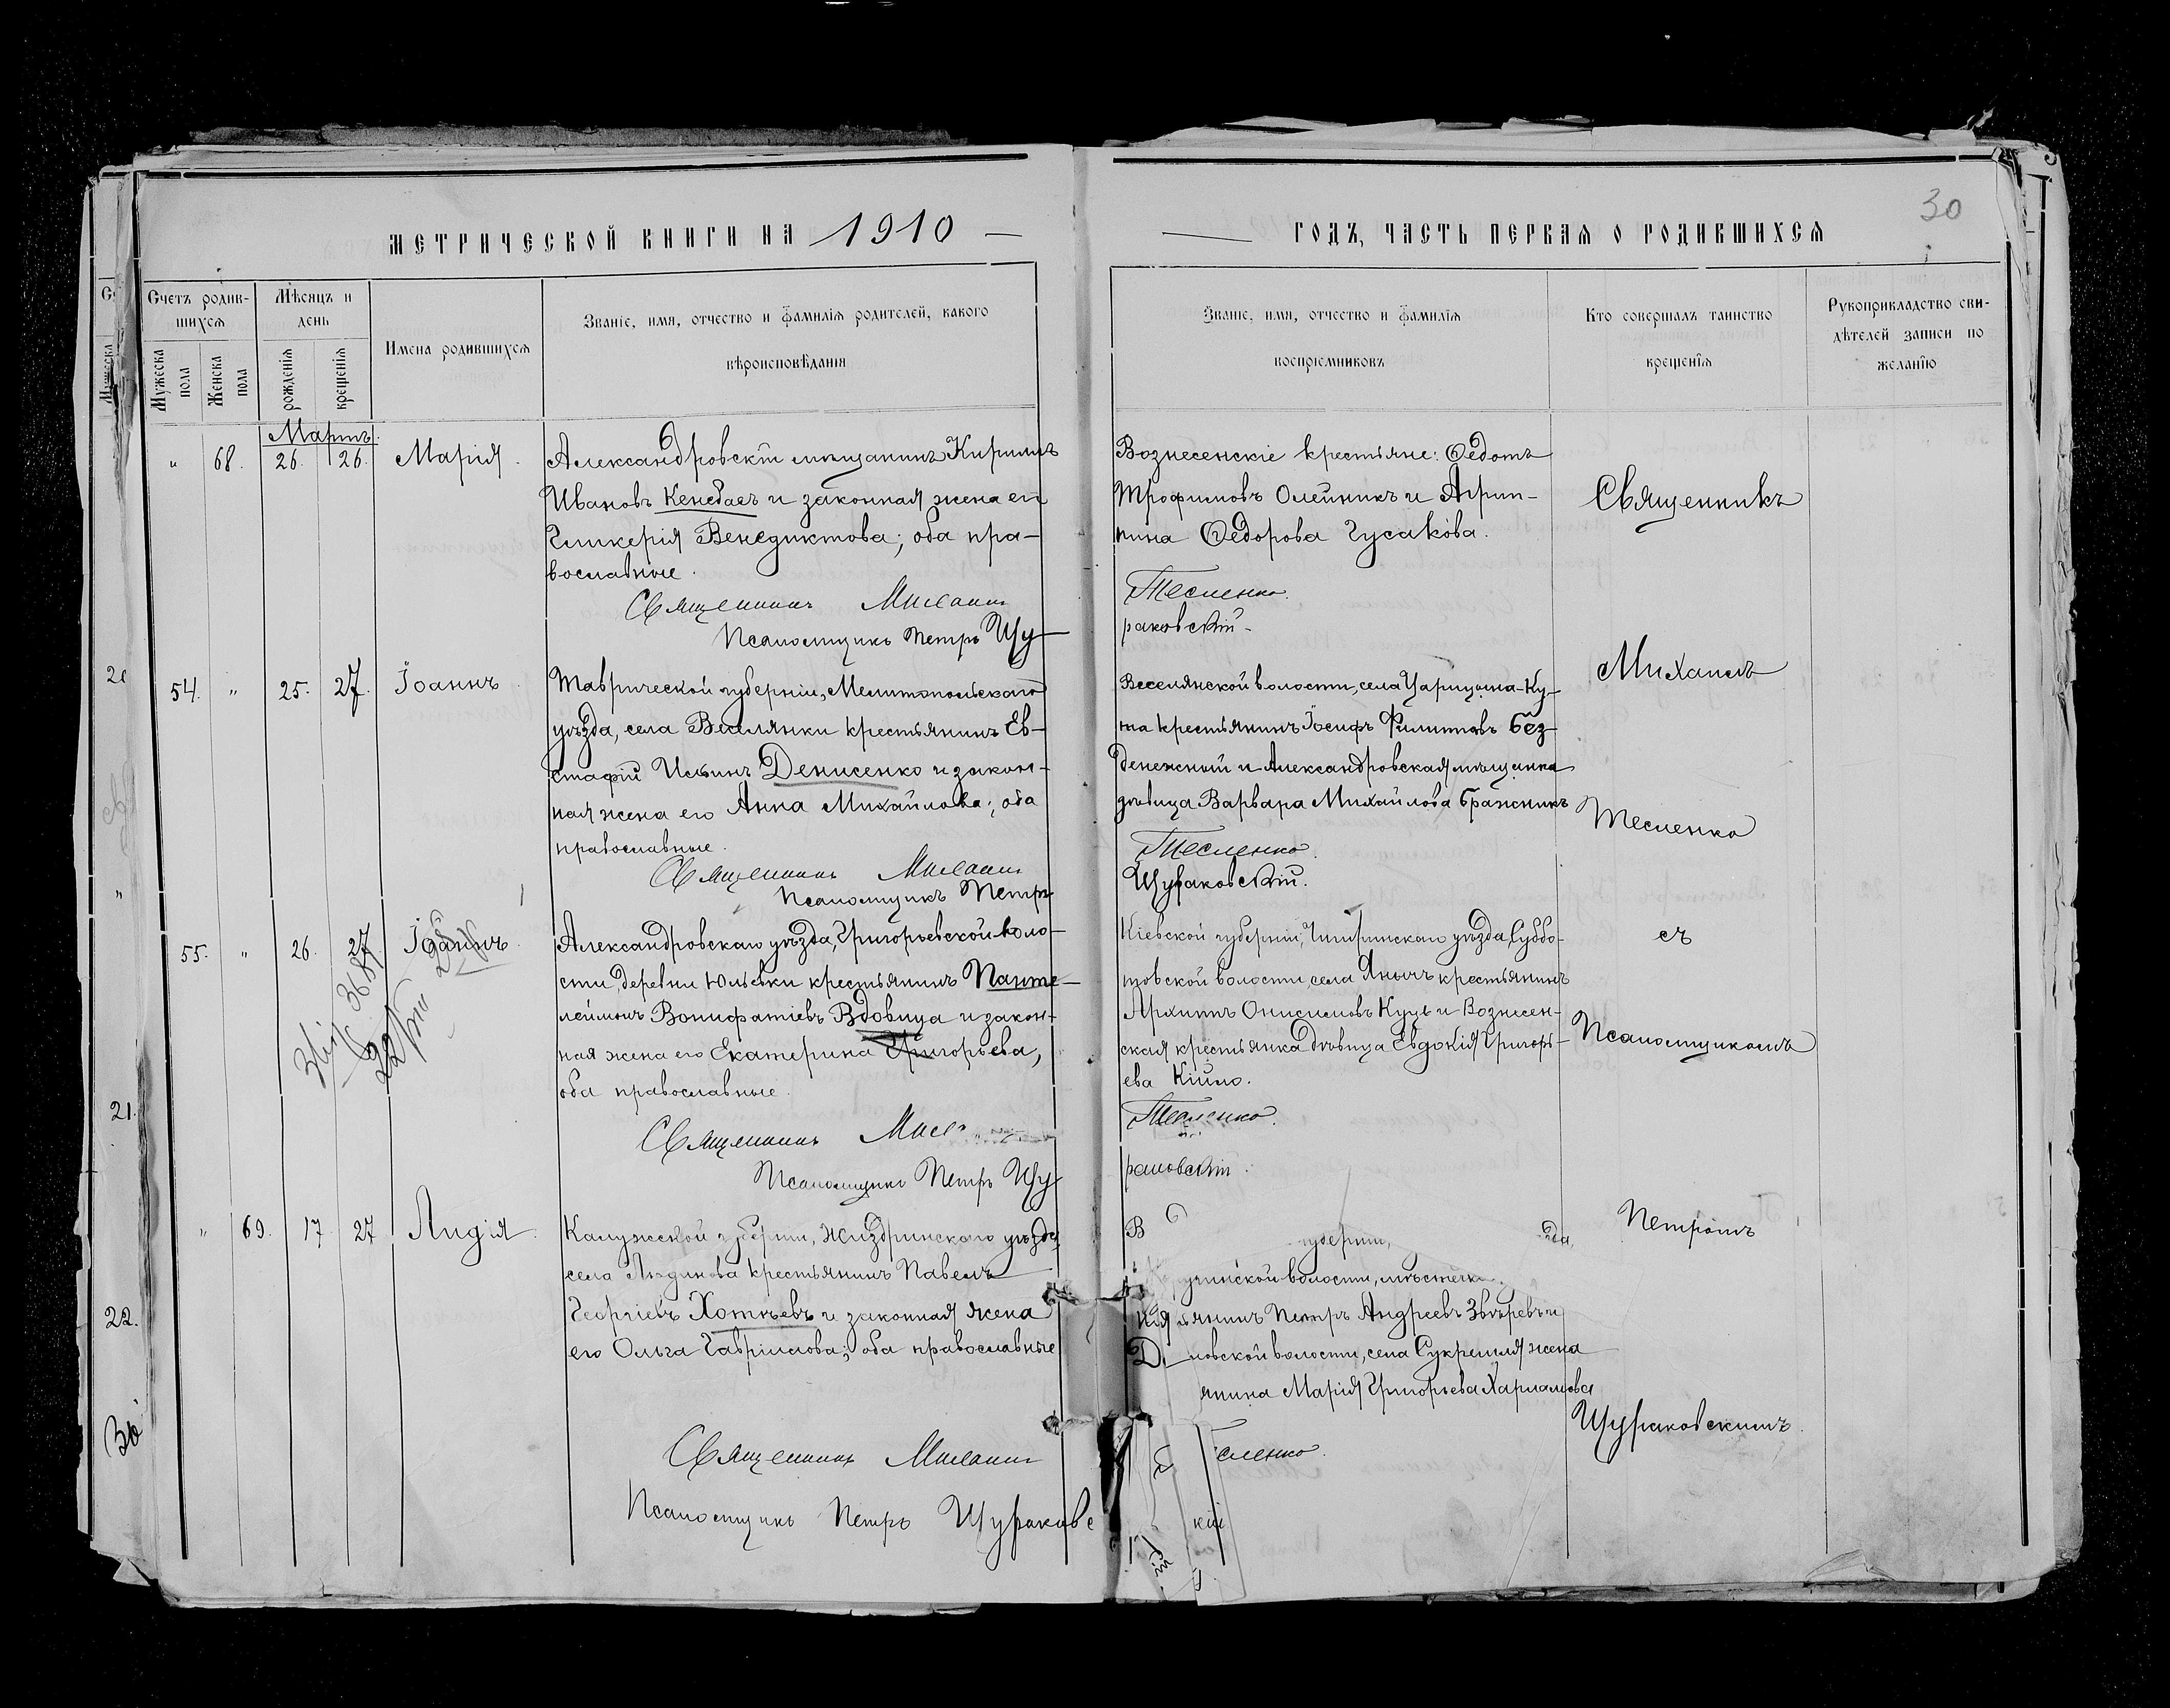 30
МЕТРИЧЕСКОЙ КНИГИ НА 1910
ГОДЪ, ЧАСТЬ ПЕРВАЯ О РОДИВШИХСЯ
Счетъ родив-
шихся
Мужеска пола
Женска пола
Мѣсяцъ и
день
рожденія
крещенія
Имена родившихся
Званіе, имя, отчество и фамилія родителей, какого
вѣроисповѣданія
Званіе, имя, отчество и фамилія
воспріемниковъ
Кто совершалъ таинство
крещенія
Рукоприкладство сви-
дѣтелей записи по
желанію
Мартъ
" 68. 26. 26. Марія.
Александровскій мѣщанинъ Кириллъ
Ивановъ Кенебаев и законная жена его
Гликерія Венедиктова; оба пра-
вославные.
Священникъ Михаилъ
Псаломщикъ Петръ Щу-
Вознесенскіе крестьяне: Ѳедотъ
Трофимовъ Олейникъ и Агрип-
пина Ѳедорова Гусакова.
Тесленко.
раковскій.
54. " 25. 27. Іоаннъ
Таврической губерніи, Мелитопольскаго
уѣзда, села Веселянки крестьянинъ Ев-
стафій Денисенко и закон-
ная жена его Анна Михайлова; оба
православные.
Священникъ Михаилъ
Псаломщикъ Петръ
Веселянской волости, села Царицына-Ку-
та крестьянинъ Іосифъ Филипповъ Без-
денежный и Александровская мѣщанка
дѣвица Варвара Михайлова Бражникъ
Тесленко.
Щураковскій.
55. " 26. 27 Іоаннъ.
Александровскаго уѣзда, Григорьевской воло-
сти, деревни Юльевки крестьянинъ Панте-
леймонъ Вонифатіевъ Вдовица и закон-
ная жена его Екатерина Григорьева,
оба православные.
Священникъ
Псаломщикъ Петръ Щу
Кіевской губерніи, Чигиринскаго уѣзда, Суббо-
товской волости, села крестьянинъ
Архиппъ Онисимовъ Куць и Вознесен-
ская крестьянка дѣвица Евдокія Григорь-
ева
Тесленко.
раковскій.
" 69. 17. 27 Лидія.
Калужской губерніи, Жиздринскаго уѣзда,
села Людинова крестьянинъ Павелъ
Георгіевъ Хотѣевъ и законная жена
его Ольга Гавріилова; оба православные
Священникъ Михаилъ
Псаломщикъ Петръ Щураковс
В губерніи,
волости, мѣстечка
Петръ Андреевъ Звѣревъ и
ловской волости, села Сукремля жена
янина Марія Григорьева Харламова
сленко.
кій
Священникъ
Михаилъ
Тесленко
съ
Псаломщикомъ
Петромъ
Щураковскимъ.
21.
22.
30